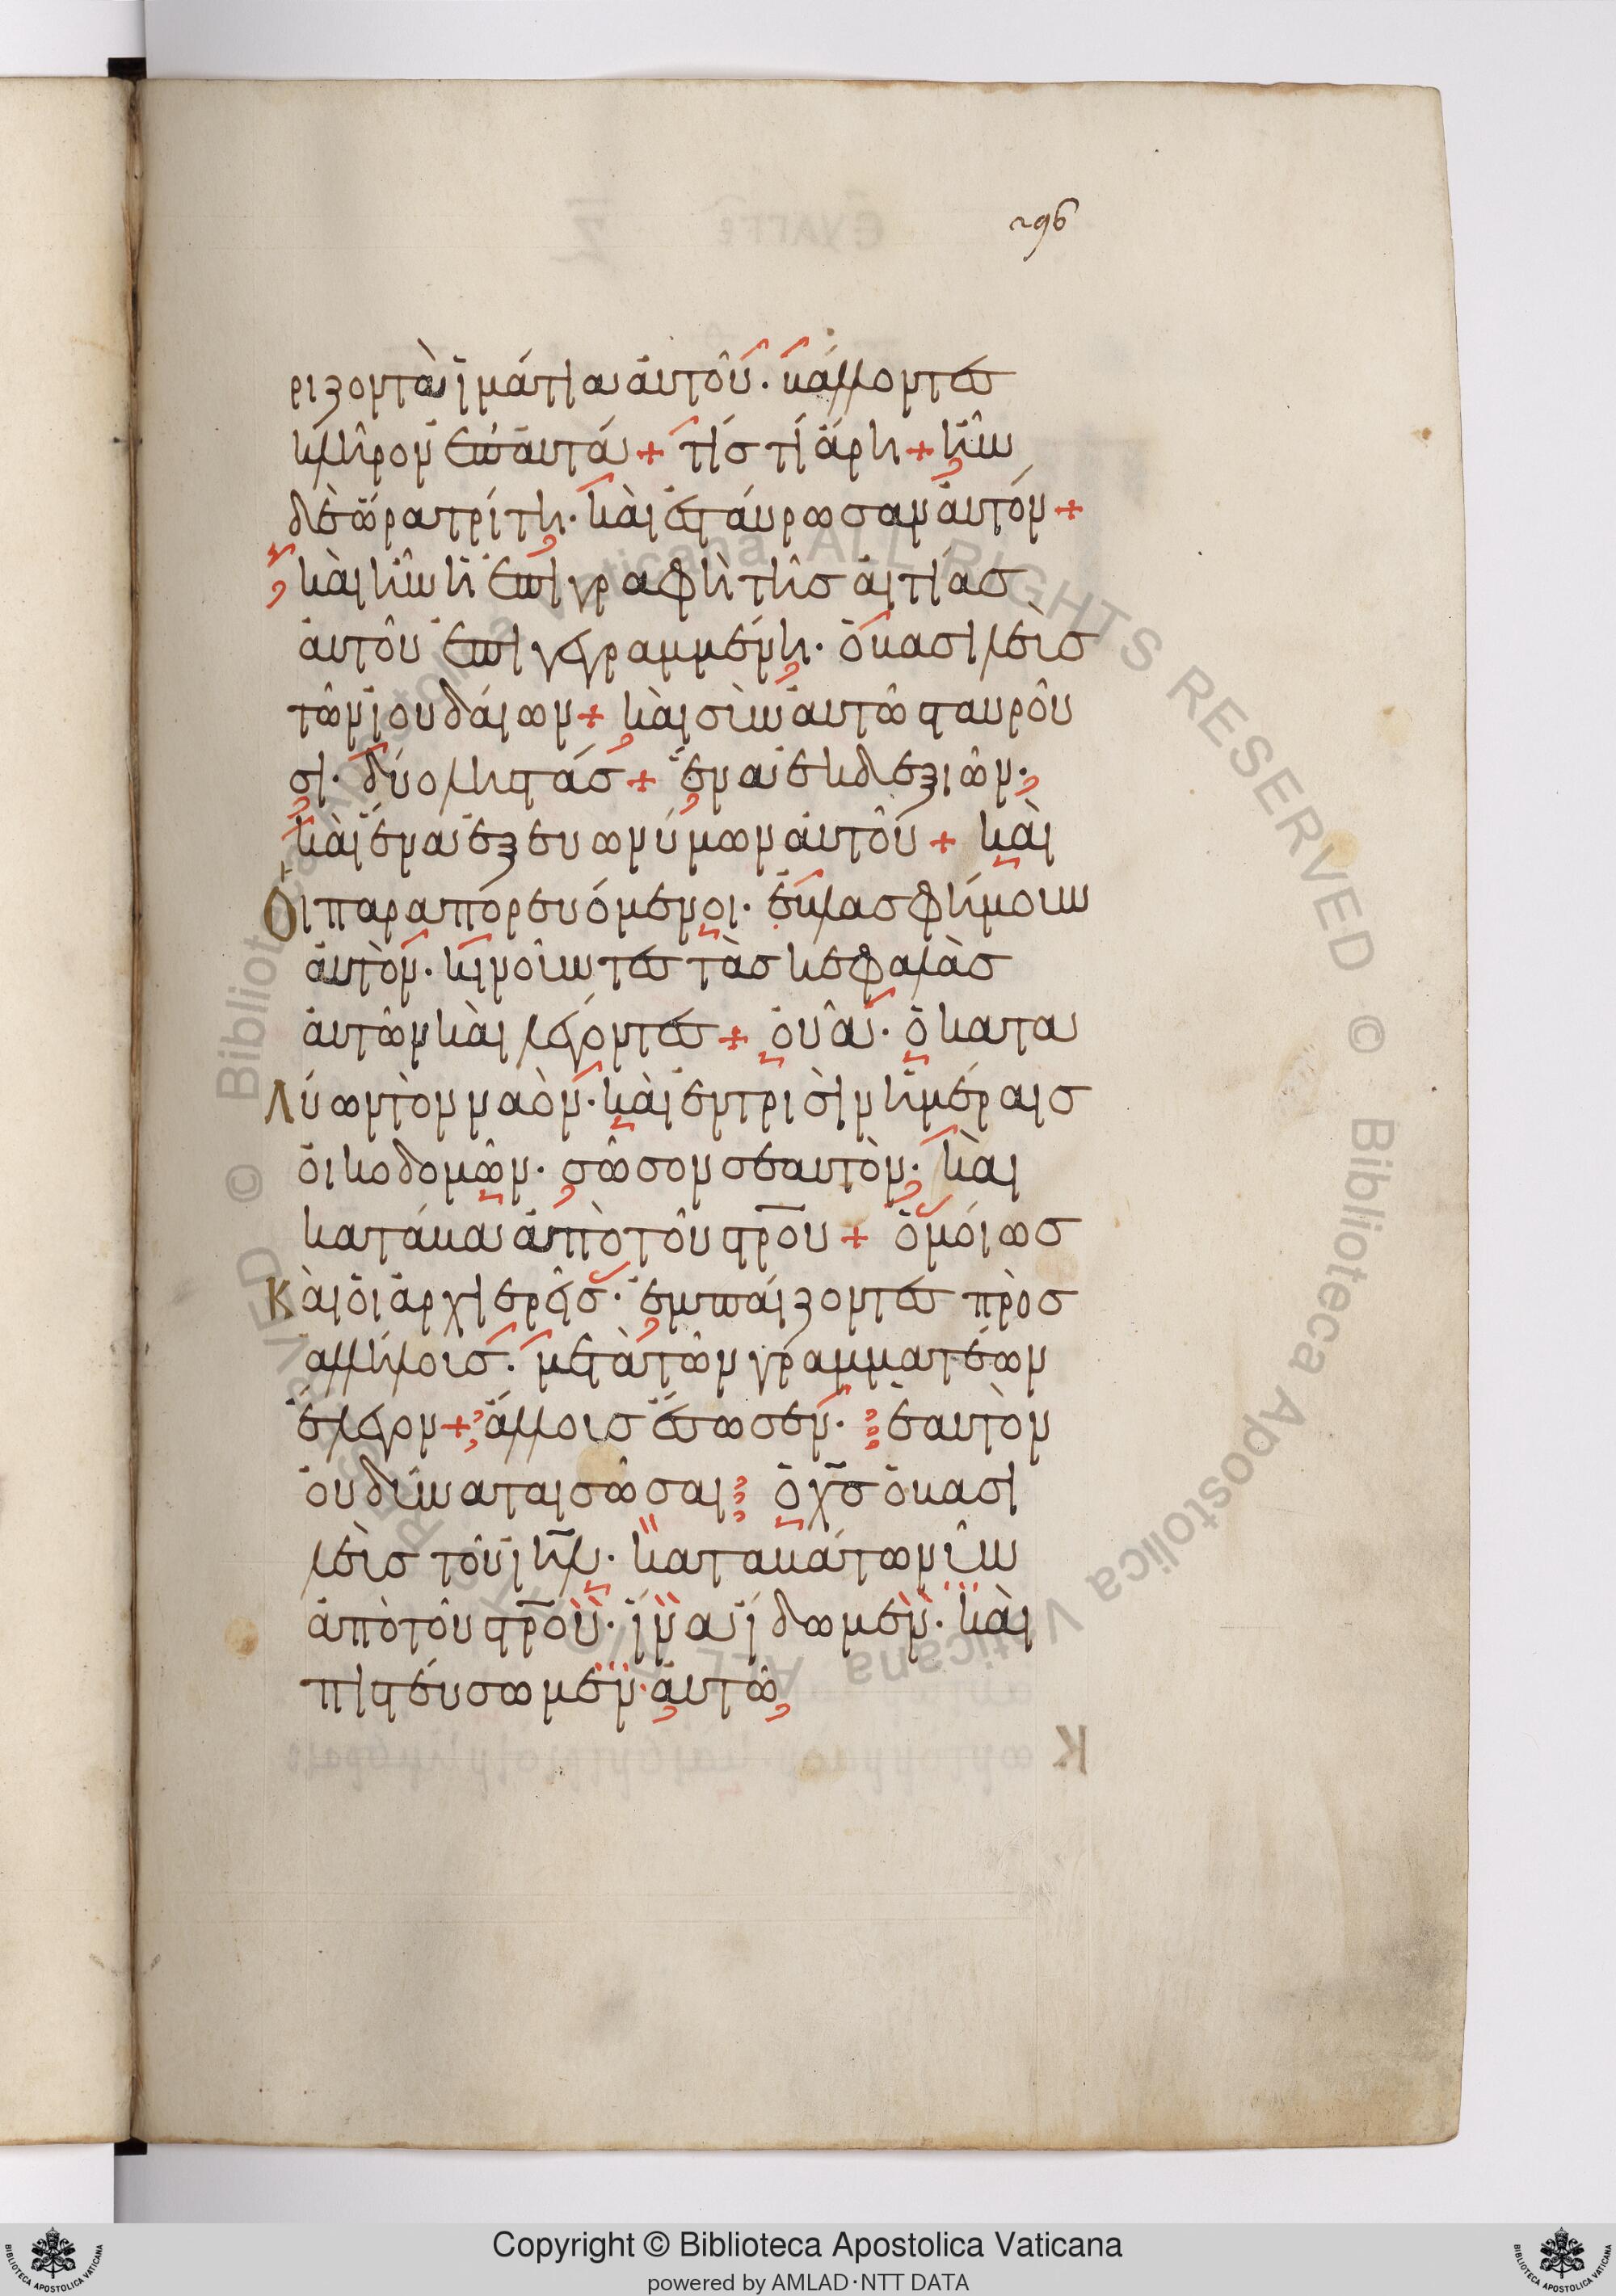 296
ριζονται ϊμάτια αὐτοῦ· βάλλοντες
κλῆρον ἐπ' αὐτά + τίς τί ἄρη + ἦν
δὲ ὥρα τρίτη· καὶ ἐσταύρωσαν αὐτόν +
καὶ ἦν ἡ ἐπιγραφὴ τῆς αἰτίας
αὐτοῦ ἐπιγεγραμμένη· ὁ βασιλεὺς
τῶν ϊουδαίων + καὶ σὺν αὐτῶ σταυροῦ
σι· δύο ληστάς + ἕνα ἐκ δεξιῶν·
καὶ ἕνα ἐξ εὐωνύμων αὐτοῦ + καὶ
Οἱ παραπορευόμενοι· ἐβλασφήμουν
αὐτὸν· κινοῦντες τὰς κεφαλὰς
αὐτῶν καὶ λέγοντες + οὐᾶ· ὁ κατα
Λύων τὸν ναὸν· καὶ ἐν τρισὶν ἡμέραις
οἰκοδομῶν· σῶσον σεαυτὸν· καὶ
κατάβα ἀπὸ τοῦ σ̅ρ̅ο̅υ + ὁμοίως
Καὶ οἱ ἀρχιερεῖς· ἐμπαίζοντες πρὸς
αλλήλους· μετὰ τῶν γραμματέων
ἔλεγον + ἄλλους ἔσωσεν· ἑαυτὸν
οὐ δύναται σῶσαι ὁ χ̅ς̅ ὁ βασι
λεὺς τοῦ ι̅η̅λ̅· καταβάτω νῦν
ἀπὸ τοῦ σ̅ρ̅ο̅υ· ἵνα ἴδωμεν· καὶ
πιστεύσωμεν· αὐτῶ
Copyright © Biblioteca Apostolica Vaticana
powered by AMLAD·NTT DATA